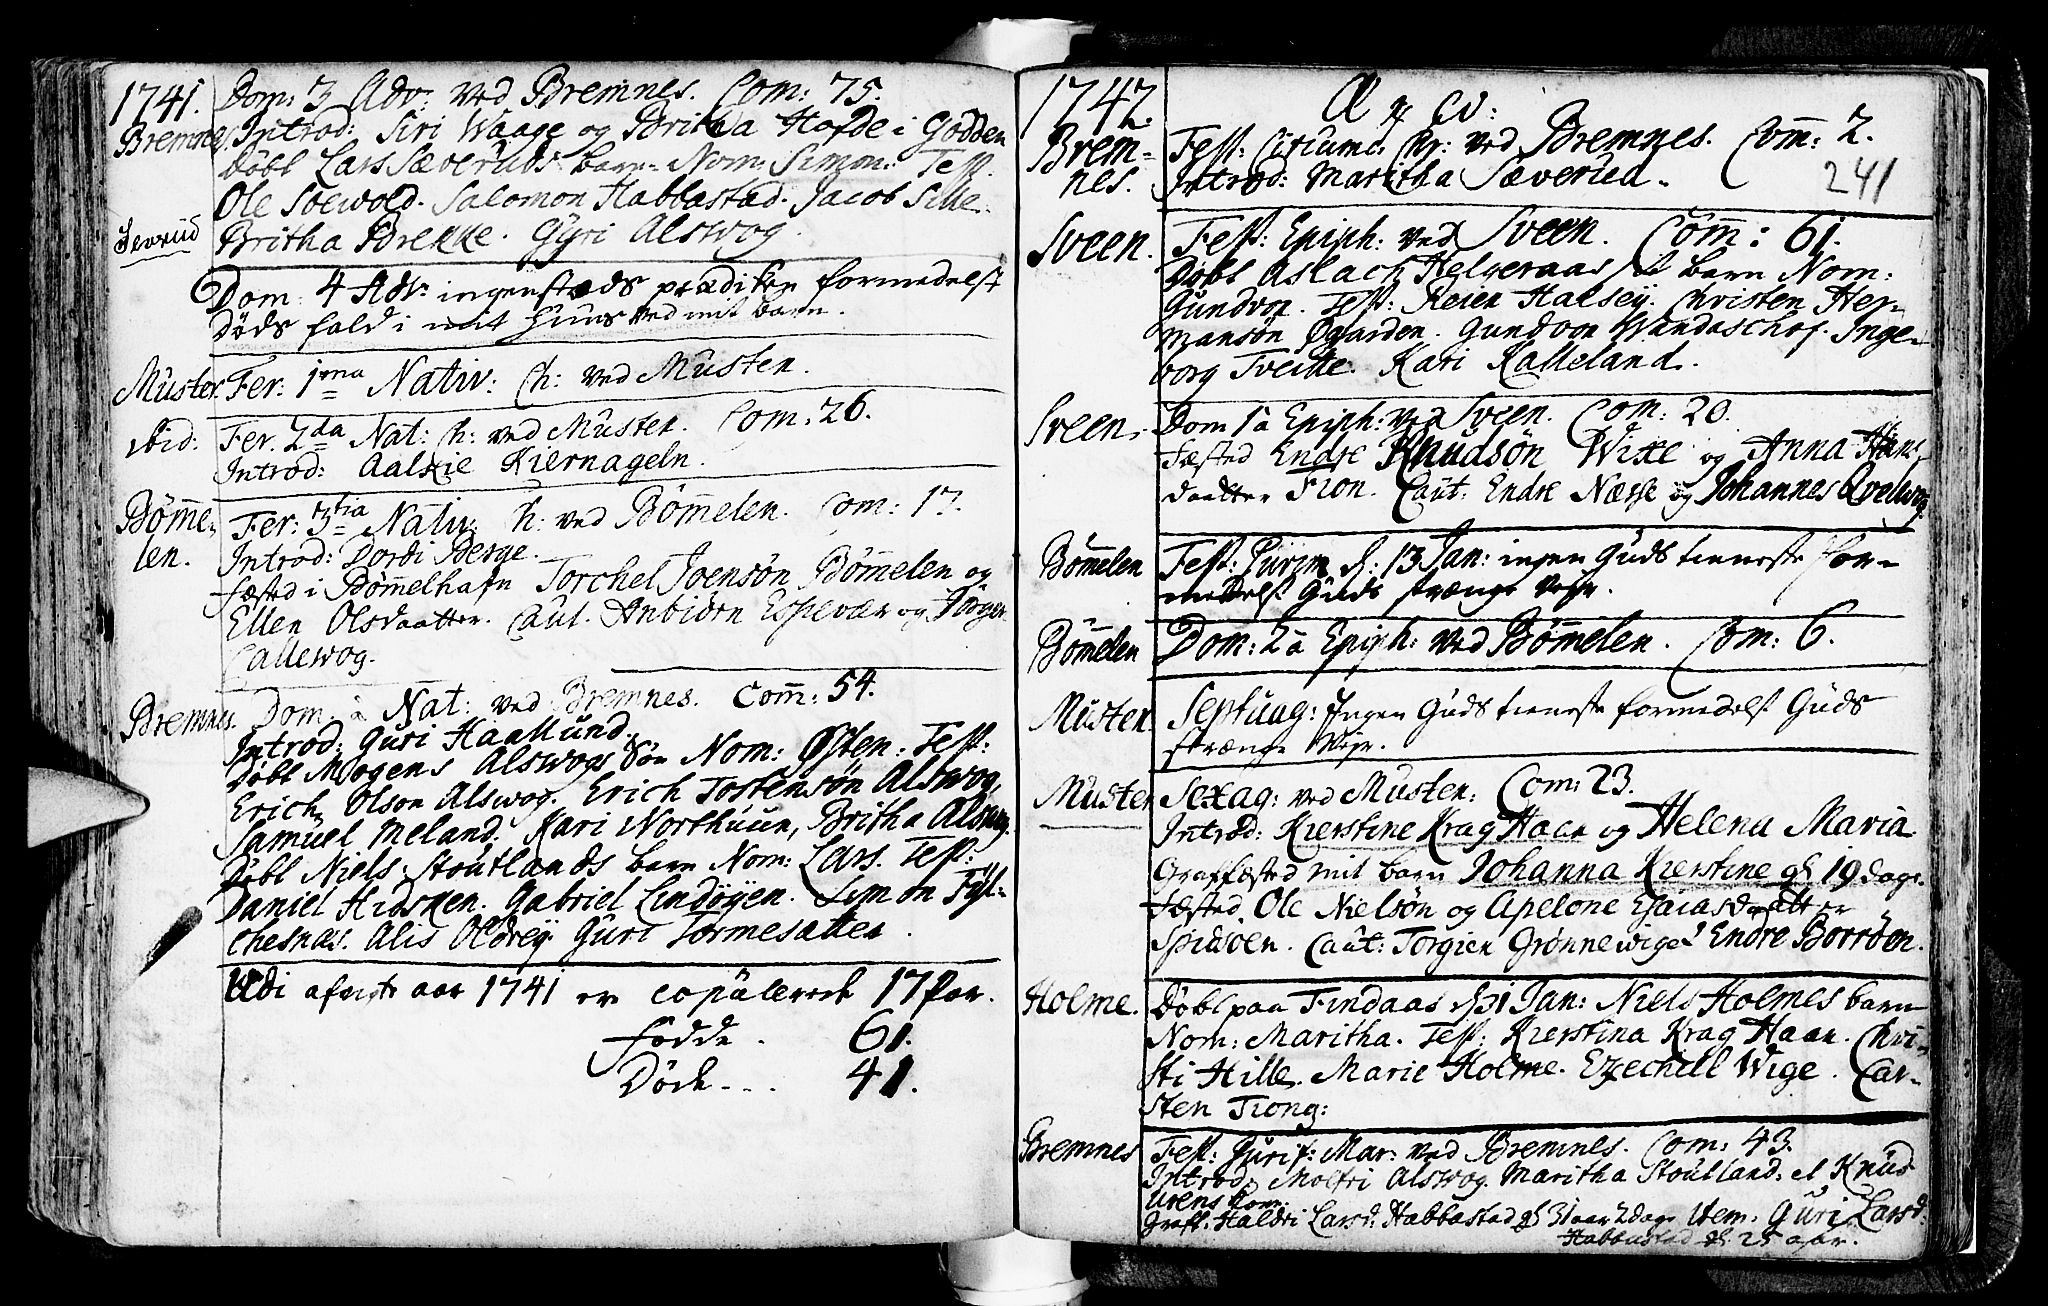 1741. Dom: 3 Adv: ved Bremnes. Com: 75.
Bremnes. Introd: Siri Waage og Britha Hofde i Godden
Døbt Lars Sæveruds barn. Nom: Simon. Test.
Ole Soewold. Salomon Habbastad. Jacob Sille.
Sevrud Britha Brekke. Gyri Alswog.
Dom: 4 Adv: ingensteds prædiken formedelst
døds fald i mit Huus ved mit barn.
Muster. Fer: 1ma Nativ: Ch: ved Muster.
ibid: Fer. 2da Nat: Ch: ved Muster. Com: 26.
Introd: Aaltie Kiernageln.
Bømme- Fer: 3tia Nativ: Ch: ved Bømmelen. Com: 17.
len. Introd: Dordi Berge.
Fæsted i Bømmelhafn Torchel Joensøn Bømmelen og
Ellen Olsdaatter. Caut. Anbiørn Espevær og Jørgen
Callewog.
Bremnes. Dom. à Nat: ved Bremnes. Com: 54.
Introd: Guri Haallund.
Døbt Mogens Alswogs Søn Nom: Østen. Test:
Erich Olson Alswog. Erich Tostensøn Alswog,
Samuel Meland. Kari Northuun, Britha Alswog.
Døbt Niels Stoutlands barn Nom: Lars. Test:
Daniel Hidsken. Gabriel Lindøyen. Simon Fyl-
chesnæs. Alis Oldrey. Guri Tormesatter.
Udi afvigte aar 1741 er copulerede 17 Par.
Fødde. 61.
Døde... 41.
1742.
241
Brem- Fest: Circumc: Chr: ved Bremnes. Com: 2.
nes. Introd: Maritha Sæverud.
Sveen. Fest: Epiph: ved Sveen. Com: 61.
Døbt Aslach Helgeraas barn Nom:
Gundvor. Test: Reier Halsey. Christen Her-
manson Øgarden. Gundvor Wandaschof. Inge-
borg Tveitte. Kari Kalleland.
Sveen. Dom 1 à Epiph: ved Sveen. Com: 20.
Fæsted Endre Knudsøn Wikke og Anna Hans
daatter Tion. Caut: Endre Næsse og Johannes Qvelwog.
Bømmelen Fest: d: 13 Jan: ingen Guds tieneste for-
medelst Guds strænge Vejr.
Bømmelen Dom: 2 à Epiph: ved Bømmelen. Com: 6.
Muster. Septuag: Ingen Guds tieneste formedelst Guds
strænge Vejr.
Muster Sexag: ved Muster. Com: 23.
Introd: Kierstine Krag Haar og Helena Maria
Graffæsted mit barn Johanna Kierstine gl. 19 dage.
Fæsted. Ole Nielsøn og Apelone Esaiasdaatter
Spidsøen. Caut: Torgier Grønnewige. Endre Borrøen.
Holme. Døbt paa Findaas d. 31 Jan: Niels Holmes barn
Nom: Maritha. Test: Kierstina Krag Haar. Chri-
sti Hille. Marie Holme. Ezechill Wige. Car-
sten Trong:
Bremnes Fest: Purif: Mar: ved Bremnes. Com: 43.
Introd: Moltri Alswog. Maritha Stoutland. et Knud
Urens Kone.
Graff. Haldri Larsd: Habbastad gl. 31 aar 2 dage Item. Guri Larsd:
Habbastad gl. 25 aar.